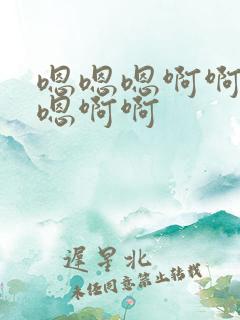 嗯嗯嗯啊啊
嗯啊啊
遲星北
未经同意禁止转载